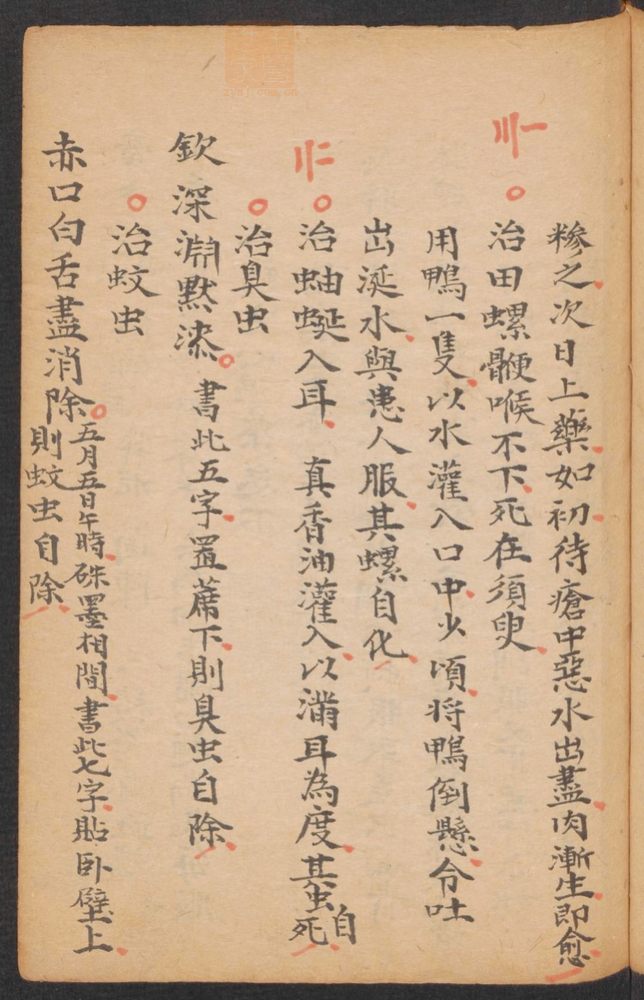 糝之次日上藥如初待瘡中惡水出盡肉漸生即愈
〣一
治田螺骾喉不下死在須臾
用鴨一隻以水灌入口中少頃將鴨倒懸令吐
出涎水與患人服其螺自化
〣二
治蚰蜒入耳 真香油灌入以滿耳為度其虫自死
治臭虫
欽深淵默漆 書此五字置蓆下則臭虫自除
治蚊虫
赤口白舌盡消除 五月五日午時硃墨相間書此七字貼卧壁上
則蚊虫自除